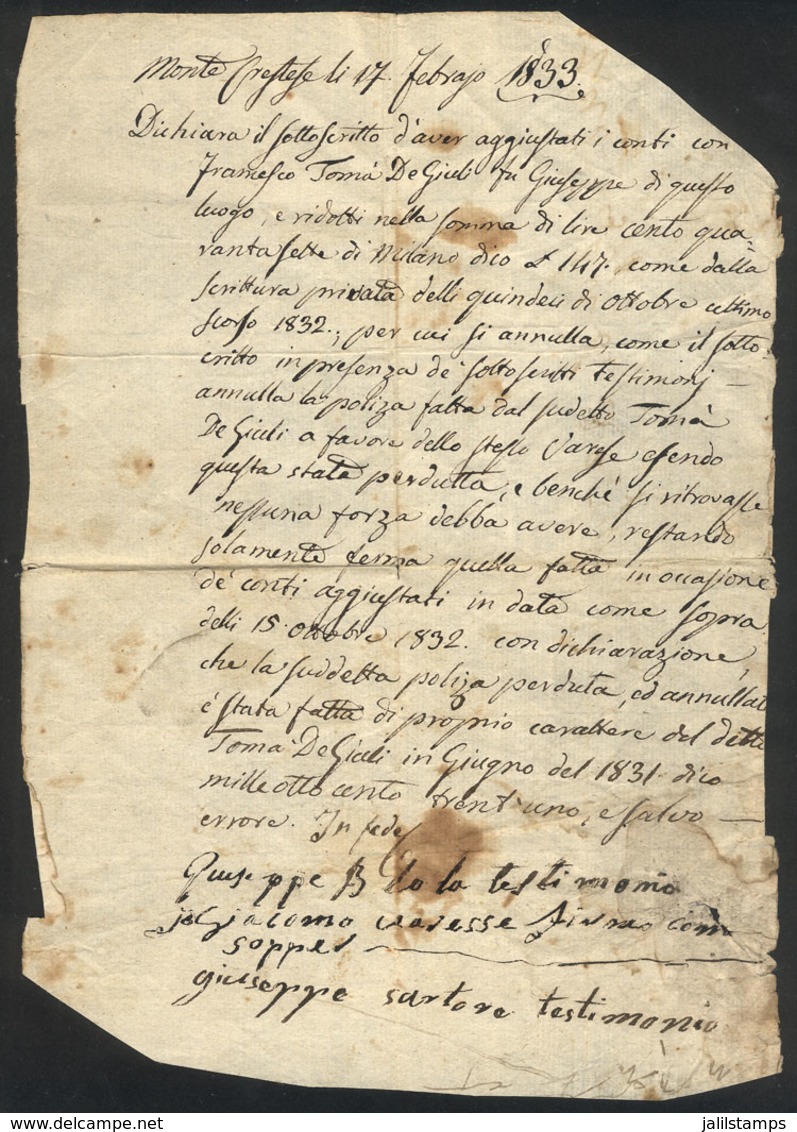 Monte Crestese li 17. Febrajo 1833.
Dichiara il sottoscritto d'aver aggiustati i conti con
Francesco Tomà De Giuli fu Giuseppe di questo
luogo, e ridotti nella somma di lire cento qua-
ranta sette di Milano dico £ 147., come dalla
scrittura privata delli quindeci di Ottobre ultimo
scorso 1832.; per cui si annulla, come il sotto-
critto in presenza de' sottoscritti testimonj —
annulla la poliza fatta dal sudetto Tomà
De Giuli a favore dello stesso Varese esendo
questa stata perdutta, e benchè si ritrovasse
nessuna forza debba avere, restando
solamente ferma quella fatta in occasione
de' conti aggiustati in data come sopra
delli 15. Ottobre 1832. con dichiarazione,
che la suddetta poliza perduta, ed annullata
è stata fatta di proprio carattere del detto
Tomà De Giuli in Giugno del 1831. dico
mille otto cento trent'uno, e salvo —
errore. In fede
Giuseppe testimonio
Giacomo varesse firmo com
sopper
giuseppe sartore testimonio